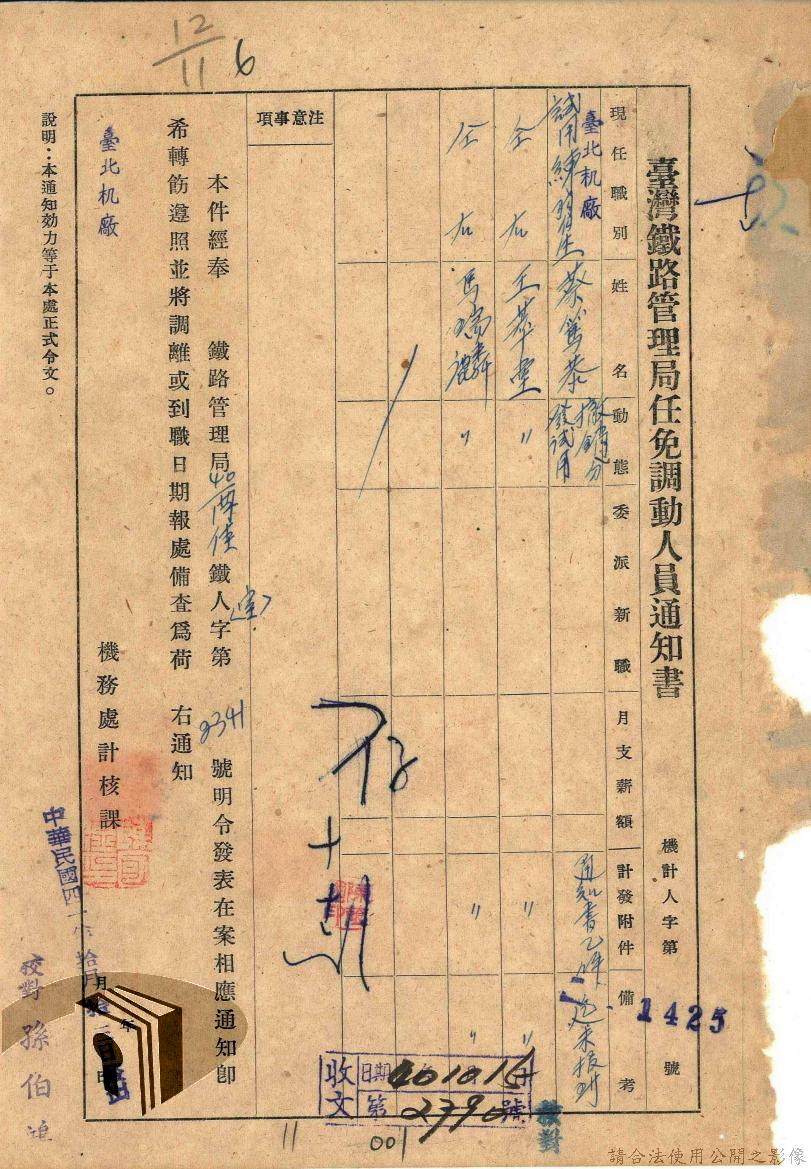 臺灣鐵路管理局任免調動人員通知書
機計人字第 1425 號
現任職別 姓名 動態 委派新職 月支薪額 計發附件 備考
臺北机廠
試用練習生 蔡篤恭 撤銷分發試用 通知書乙件 迄未報到
仝右 王萃堂 〃 〃 〃
仝右 馬瑞麟 〃 〃 〃
注意事項
本件經奉 鐵路管理局40 鐵人字第 2341 號明令發表在案相應通知卽
希轉飭遵照並將調離或到職日期報處備查爲荷 右通知
臺北机廠
機務處計核課
中華民國四 年拾月拾 日
說明：本通知効力等于本處正式令文。
校對 孫伯
存
收文
日期 40.10.15
第 2390 號
校對
12/11 6
11
001
請合法使用公開之影像